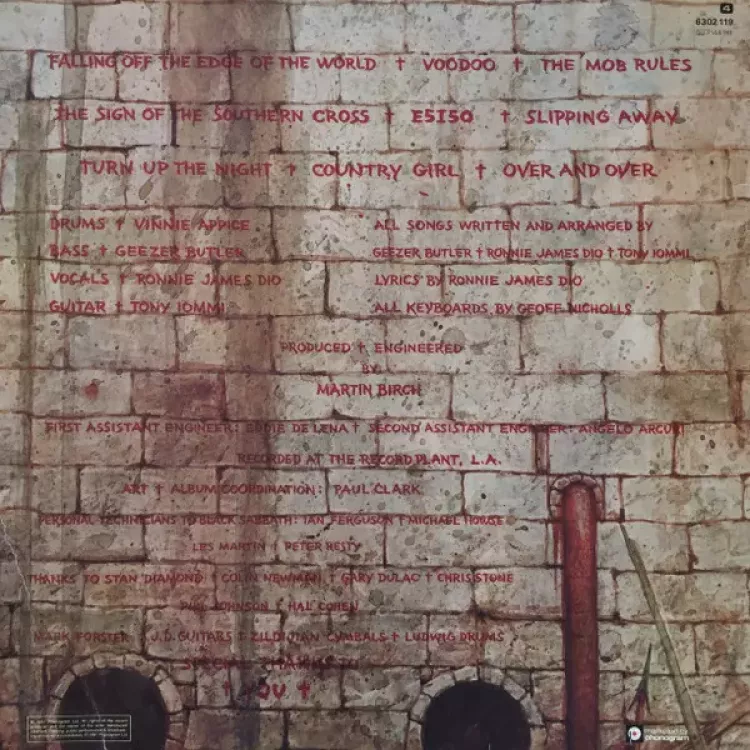 4
6302 119
FALLING OFF THE EDGE OF THE WORLD † VOODOO † THE MOB RULES
THE SIGN OF THE SOUTHERN CROSS † E5150 † SLIPPING AWAY
TURN UP THE NIGHT † COUNTRY GIRL † OVER AND OVER
DRUMS † VINNIE APPICE
BASS † GEEZER BUTLER
VOCALS † RONNIE JAMES DIO
GUITAR † TONY IOMMI
ALL SONGS WRITTEN AND ARRANGED BY
GEEZER BUTLER † RONNIE JAMES DIO † TONY IOMMI
LYRICS BY RONNIE JAMES DIO
ALL KEYBOARDS BY GEOFF NICHOLLS
PRODUCED † ENGINEERED
BY
MARTIN BIRCH
FIRST ASSISTANT ENGINEER: EDDIE DE LENA † SECOND ASSISTANT ENGINEER: ANGELO ARCURI
RECORDED AT THE RECORD PLANT, L.A.
ART † ALBUM COORDINATION: PAUL CLARK
PERSONAL TECHNICIANS TO BLACK SABBATH: IAN FERGUSON † MICHAEL HOWSE
LES MARTIN † PETER RESTY
THANKS TO STAN DIAMOND † COLIN NEWMAN † GARY DULAC † CHRIS STONE
PAUL JOHNSON † HAL COHEN
MARK FORSTER † J.D. GUITARS † ZILDJIAN CYMBALS † LUDWIG DRUMS
SPECIAL THANKS TO
† YOU †
marketed by
phonogram